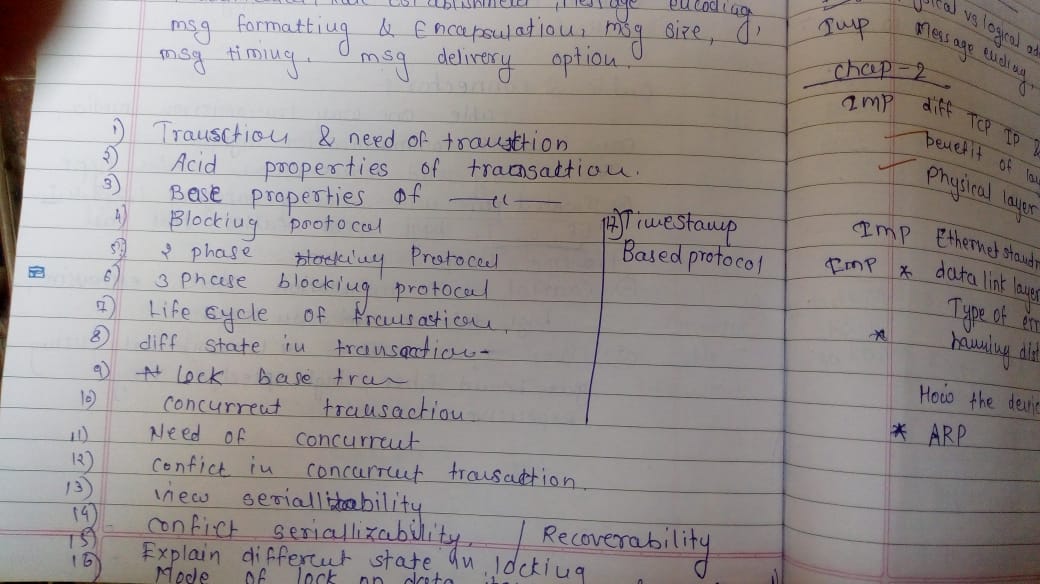 msg formatting & Encapsulation, msg size,
msg timing, msg delivery option.
1) Transction & need of transtion
2) Acid properties of transattion.
3) Base properties of —〃—
4) Blocking protocol
5) 2 phase blocking Protocol
6) 3 Phase blocking protocol
7) Life cycle of transation,
8) diff state in transaction-
9) lock base tran
10) concurrent transaction
11) Need of concurrent
12) Confict in concurrent transattion.
13) view seriallizability
14) confict seriallizability. / Recoverability
15) Explain different state in locking
16) Mode of lock on data
17) Timestamp
Based protocol
vs logical
Imp Message
chap-2
IMP diff TCP IP &
benefit of
Physical layer
IMP Ethernet
Imp * data link layer
Type of
* hamming
How the
* ARP